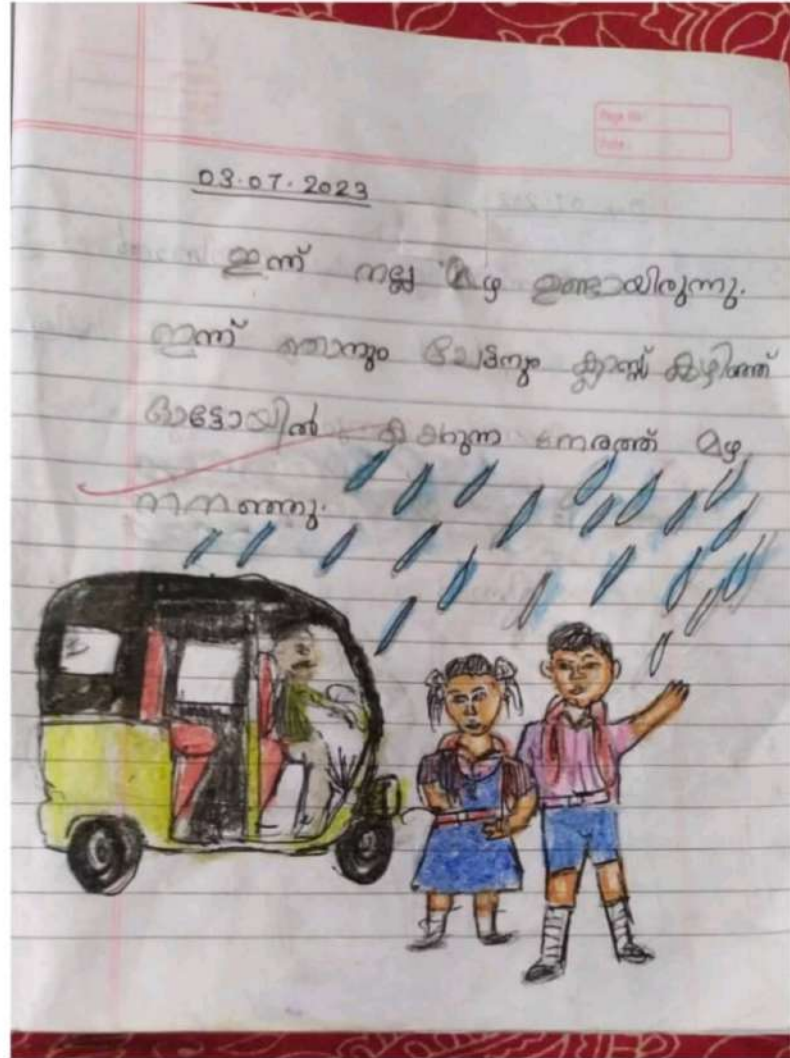 Page No:
Date:
03.07.2023
ഇന്ന് നല്ല മഴ ഉണ്ടായിരുന്നു.
ഇന്ന് ഞാനും ചേട്ടനും ക്ലാസ്സ് കഴിഞ്ഞ്
ഓട്ടോയിൽ കയറുന്ന നേരത്ത് മഴ
നനഞ്ഞു.